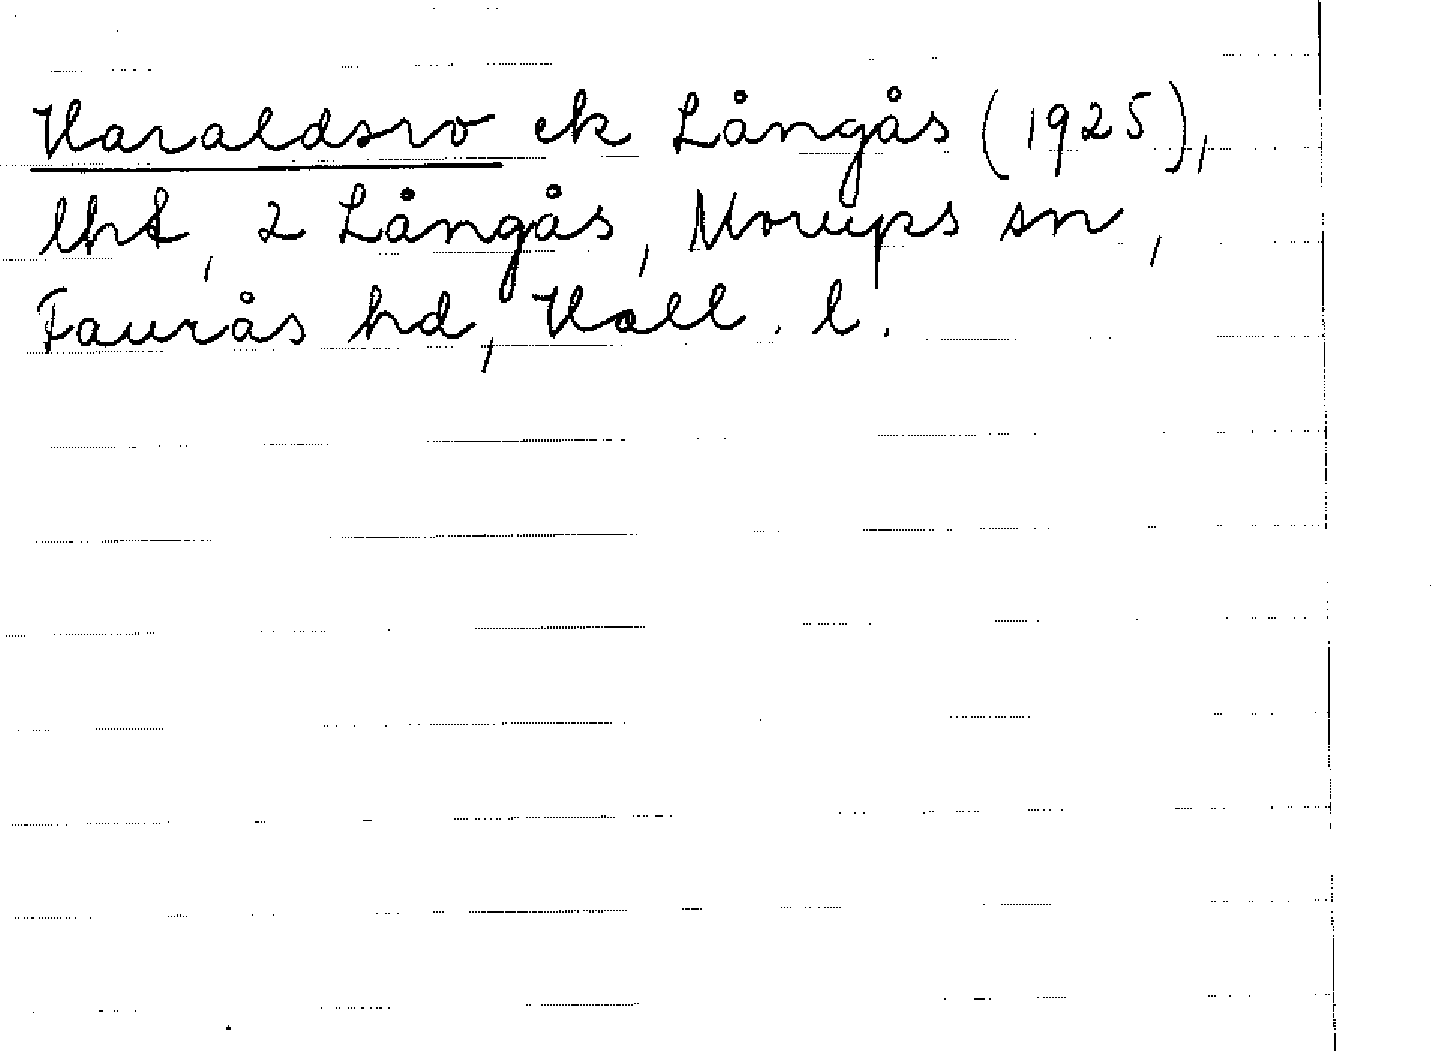 Haraldsro ek Långås (1925),
lht, 2 Långås, Morups sn,
Faurås hd, Hall. l.